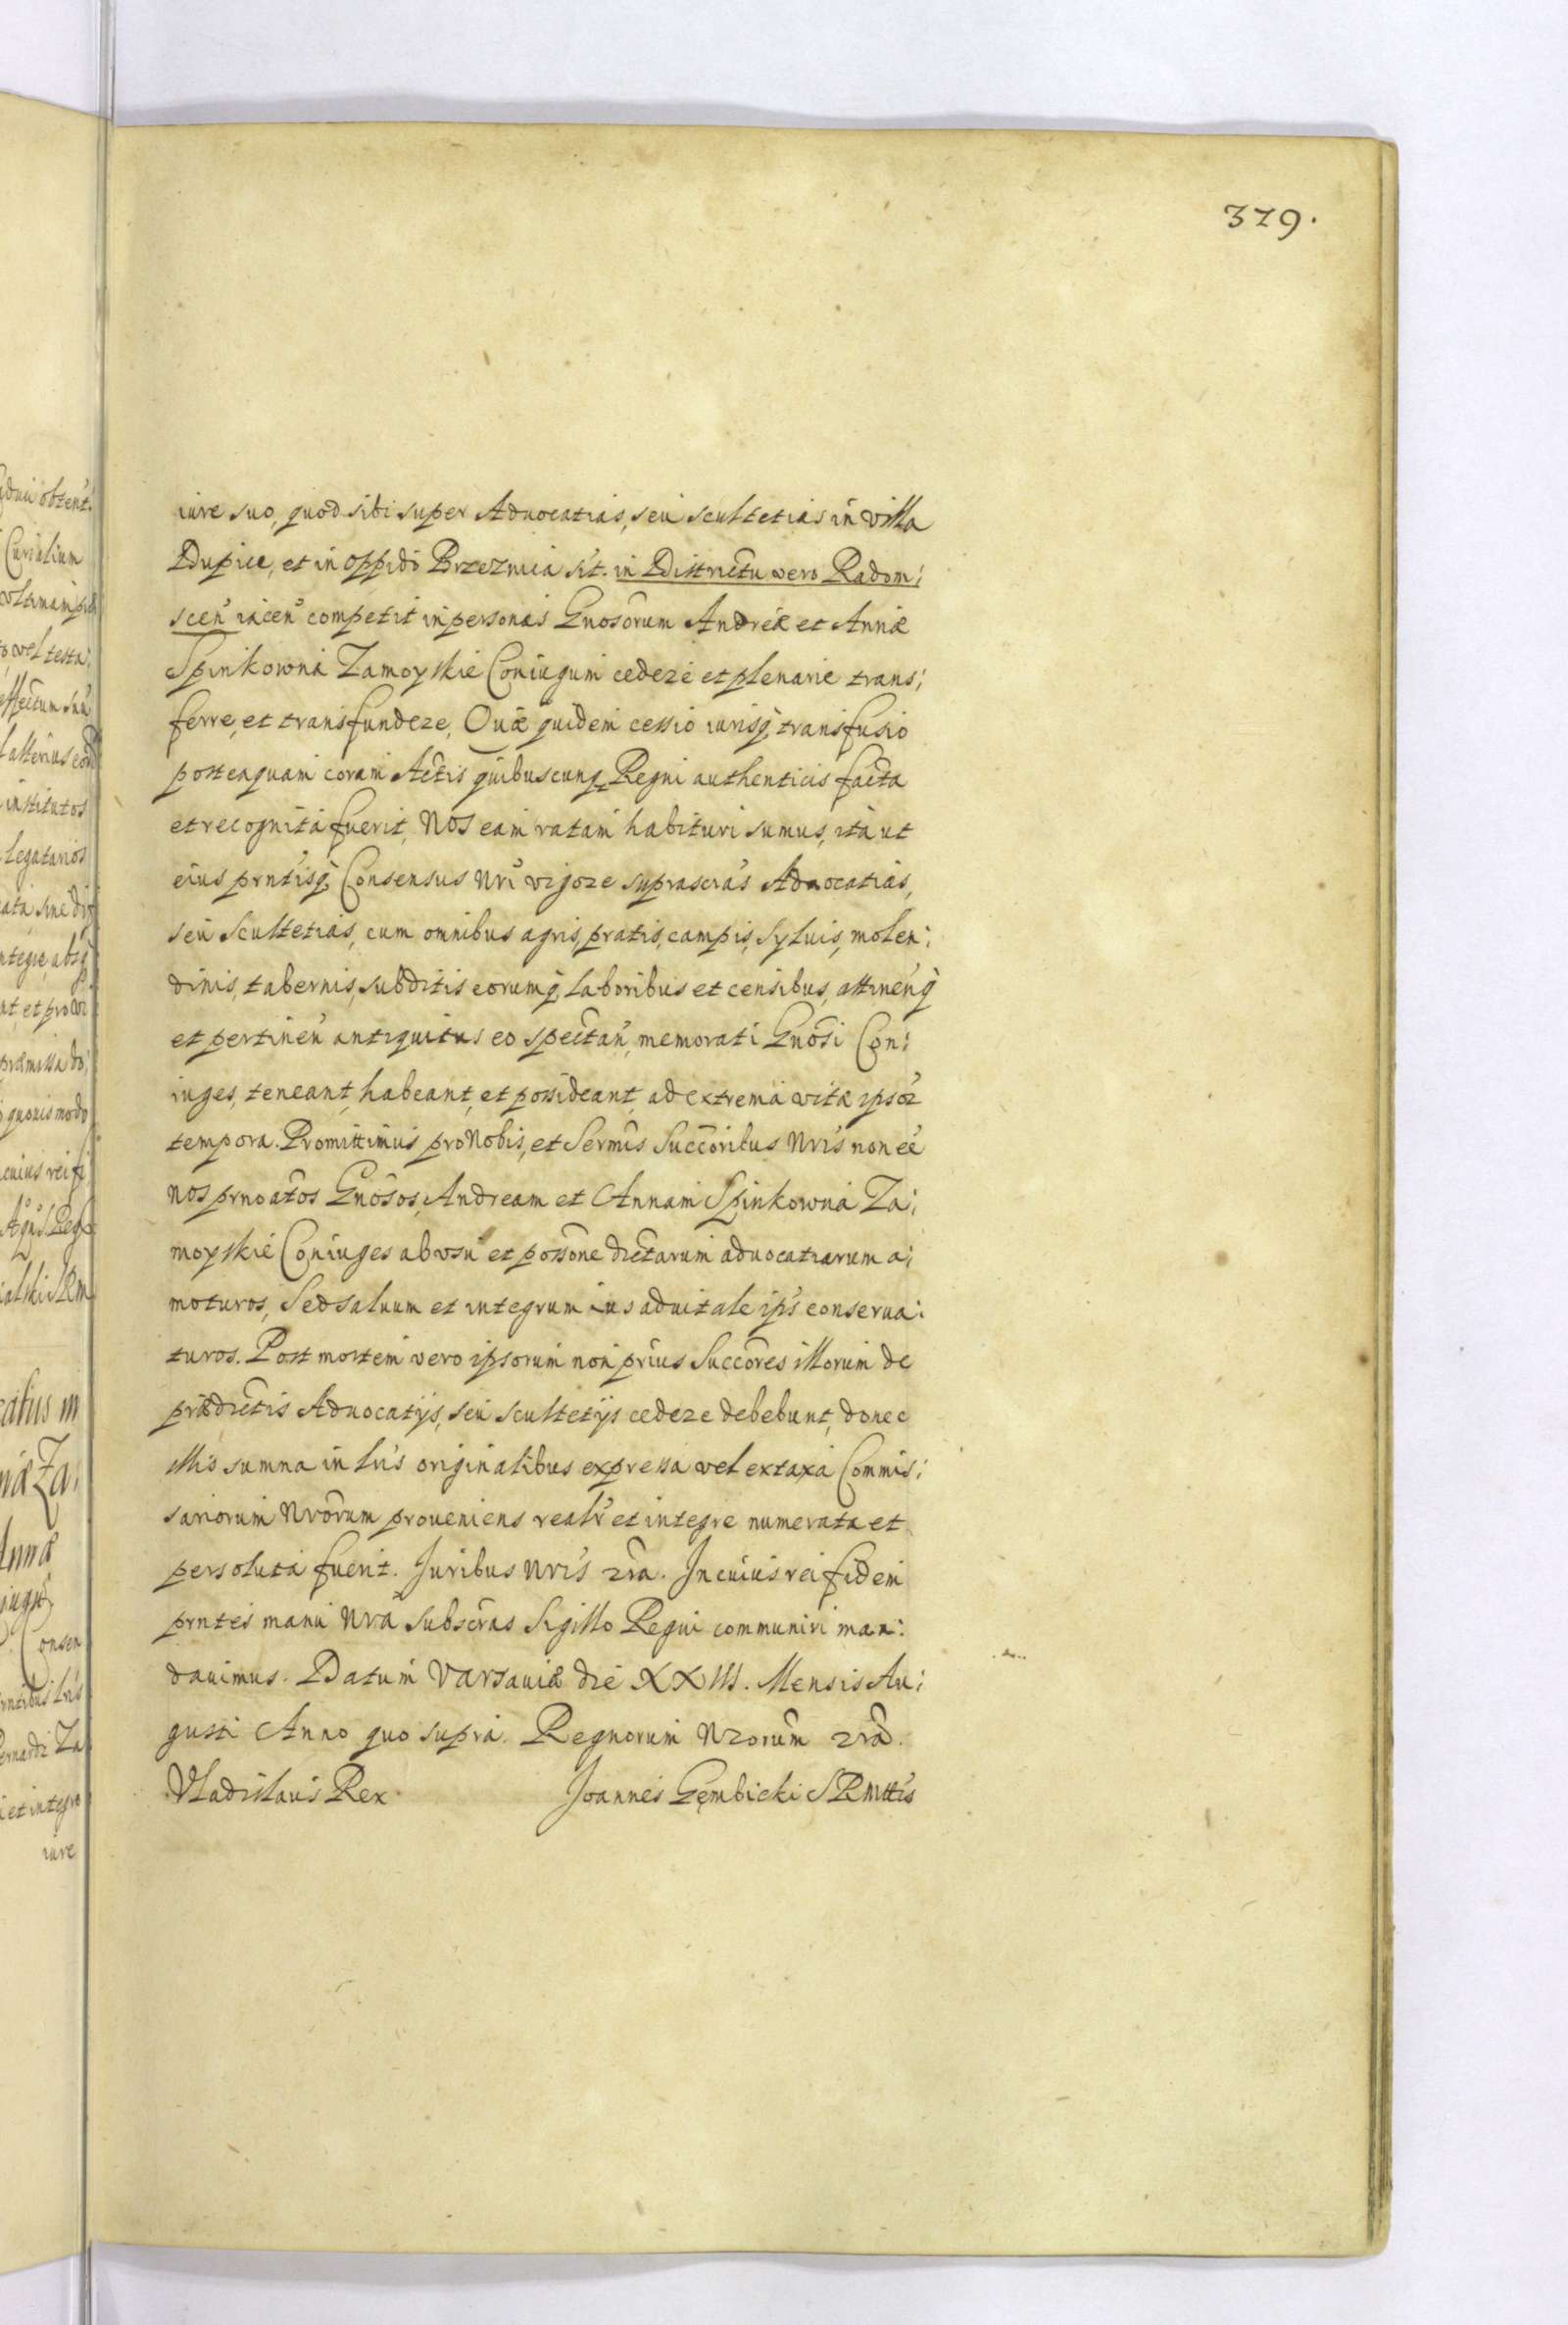 379.
iure suo, quod sibi super Aduocatias, seu scultetias in villa
Dupice, et in oppido Brzeznica sit. in Districtu vero Radom:
scen̄ iacen̄ competit in personas Gnosorum Andreæ et Annæ
Spinkowna Zamoyskie Coniugum cedere et plenarie trans:
ferre, et transfundere, Quæ quidem cessio iurisq̢ transfusio
posteaquam coram Actis quibuscunq̢ Regni authenticis facta
et recognita fuerit, Nos eam ratam habituri sumus, ita ut
eius prntisq̢ Consensus Nri vigore suprascras Aduocatias,
seu Scultetias, cum omnibus agris, pratis, campis, syluis, molen:
dinis, tabernis, subditis eorumq̢ laboribus et censibus, attinen̄q̢
et pertinen̄ antiquitus eo spectan̄, memorati Gnosi Con:
iuges, teneant, habeant, et possideant, ad extrema vitæ ipsor̄
tempora. Promittimus pro Nobis, et Sermis Succoribus Nris non ee
nos prnoatos Gnosos, Andream et Annam Spinkowna Za:
moyskie Coniuges ab vsu et possone dictarum aduocatiarum a:
moturos, Sed saluum et integrum ius aduitale ips conserua:
turos. Post mortem vero ipsorum non prius Succores illorum de
prædictis Aduocatijs, seu scultetijs cedere debebunt, donec
illis summa in lris originalibus expressa vel ex taxa Commis:
sariorum Nrorum proueniens realr et integre numerata et
persoluta fuerit. Juribus Nris 2ra. In cuius rei fidem
prntes manu Nra subscras Sigillo Regni communiri man:
dauimus. Datum Varsauiæ die XXIII. Mensis Au:
gusti Anno quo supra. Regnorum Nrorum 2ra.
Vladislaus Rex Joannes Gembicki SRMttis